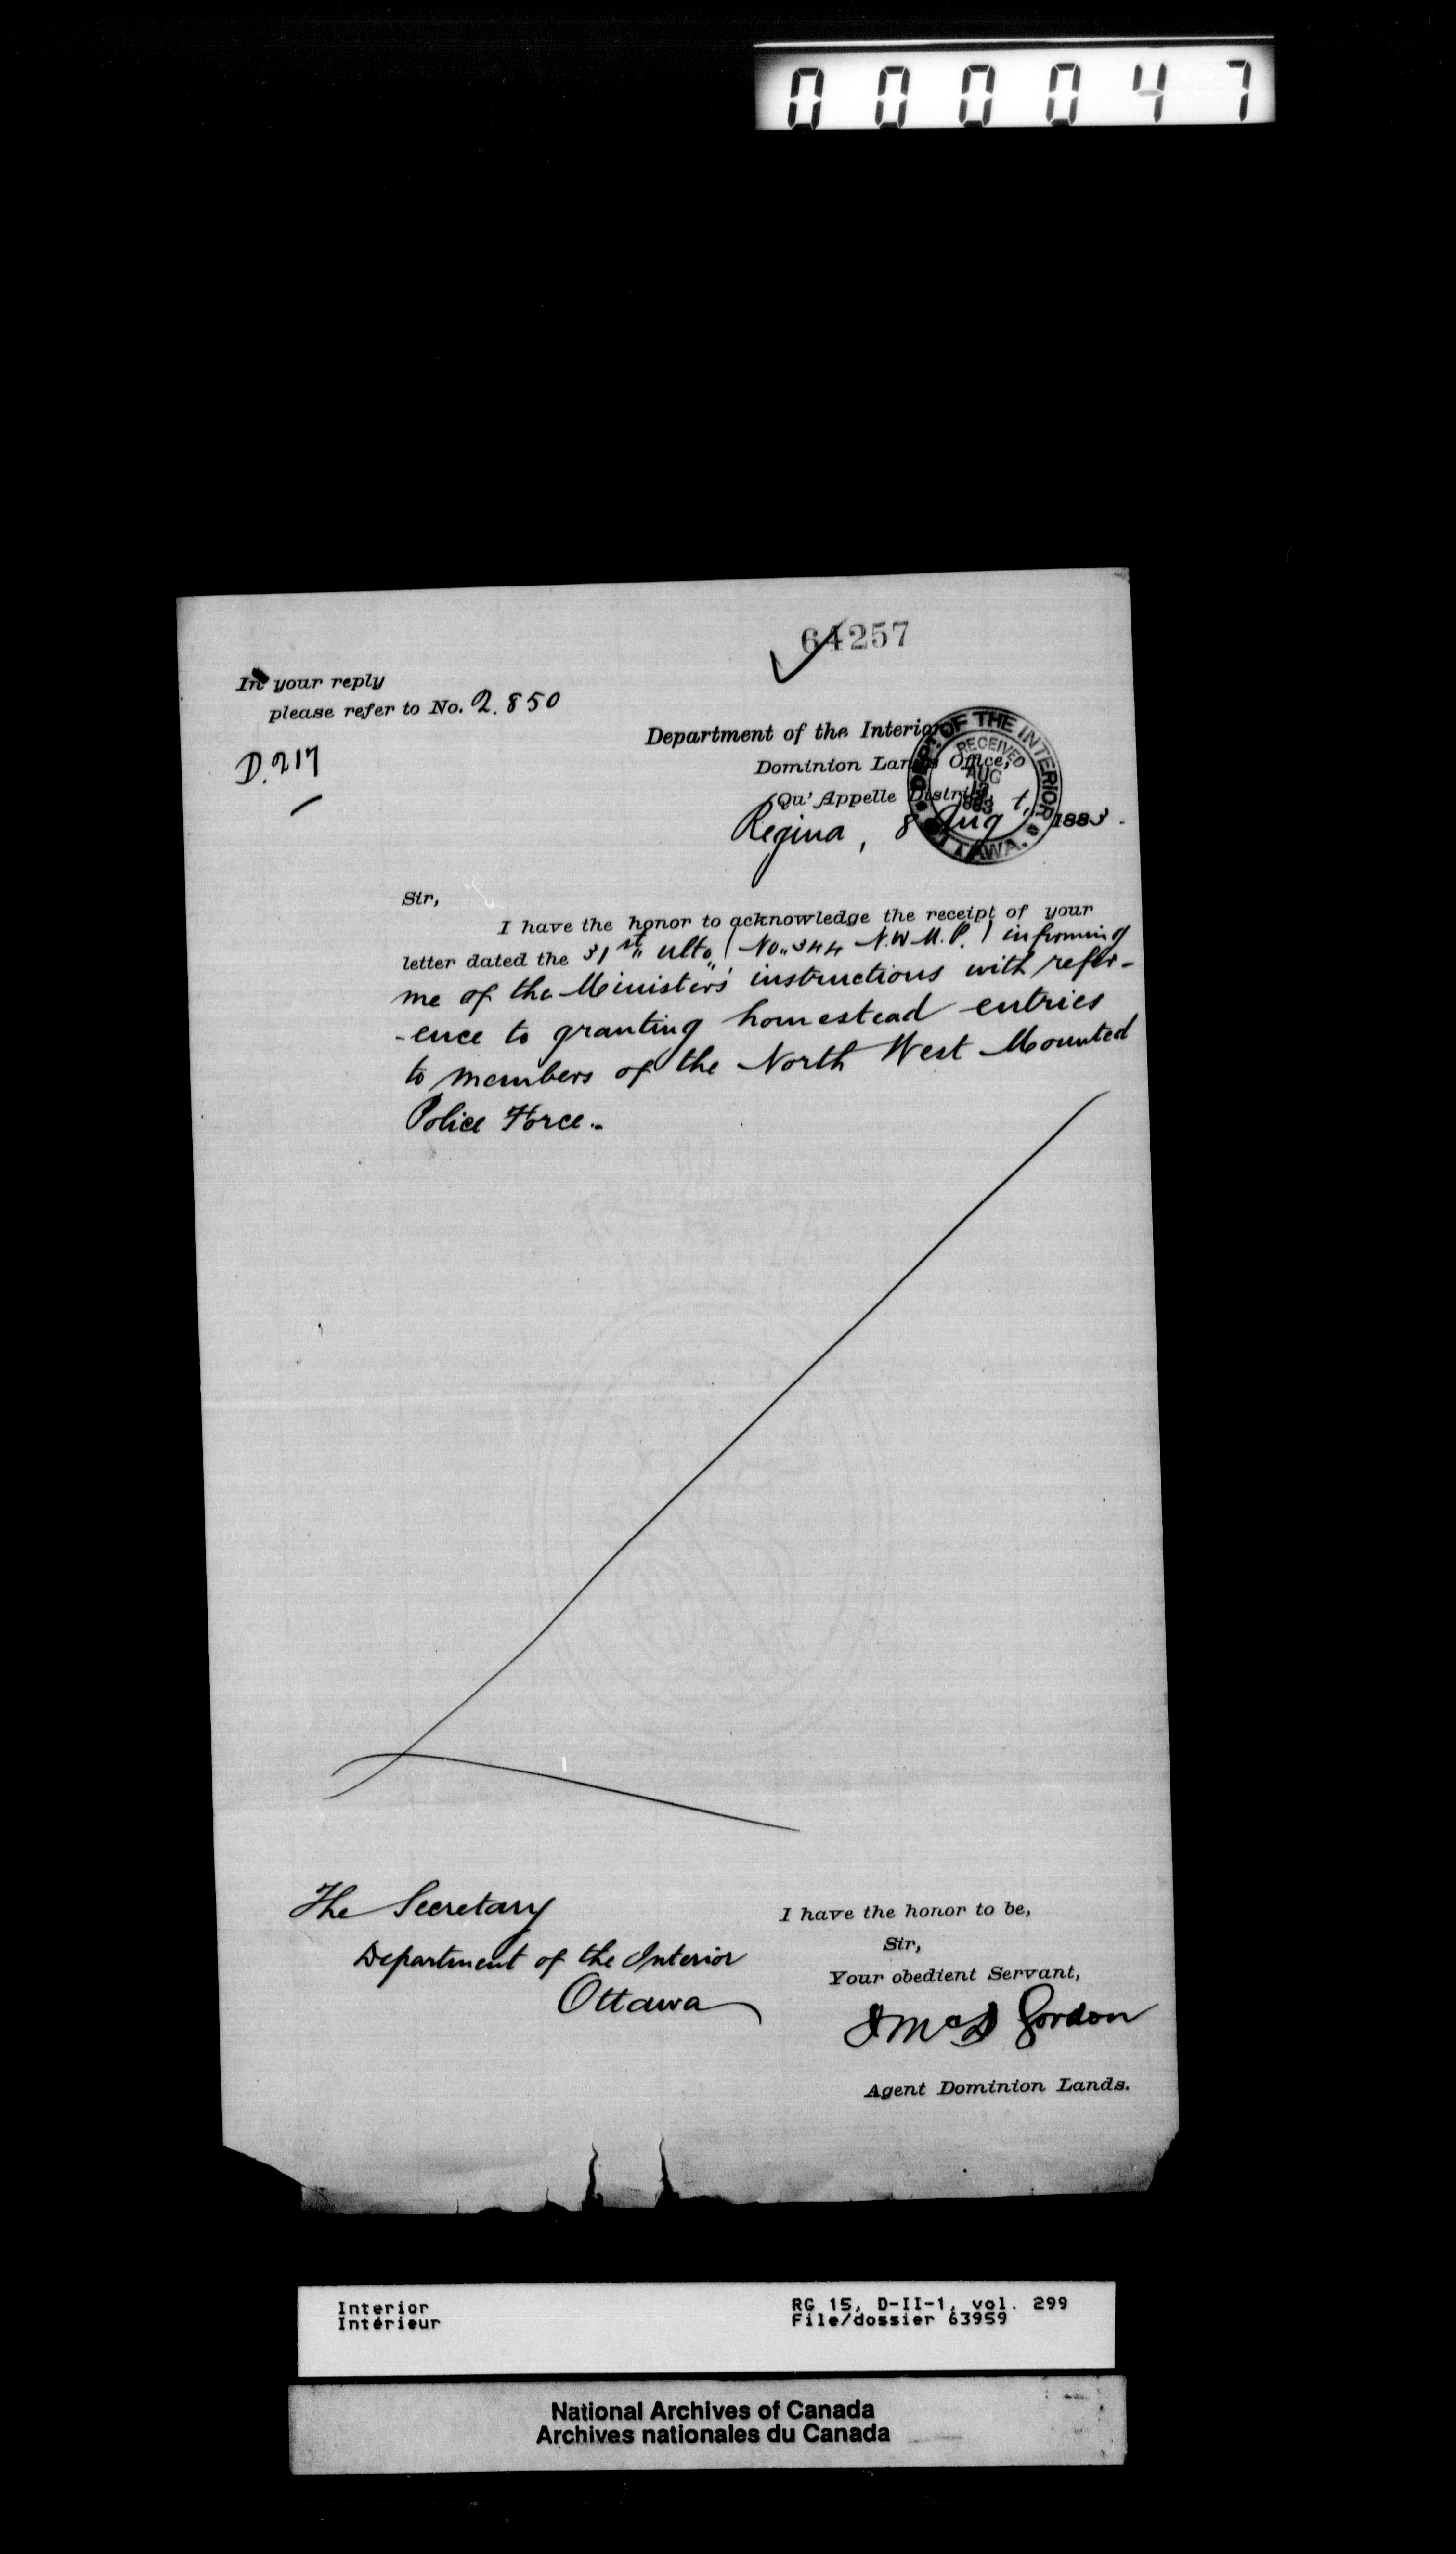 000047
64257
In your reply
please refer to No. 2.850
D.217
Department of the Interior,
Dominion Lands Office,
Qu'Appelle District,
Regina, 8 Augt, 1883.
DEPT. OF THE INTERIOR
RECEIVED
AUG
OTTAWA.
Sir,
I have the honor to acknowledge the receipt of your
letter dated the 31st ulto (No. 344 N.W.M.P.) informing
me of the Minister's instructions with refer-
-ence to granting homestead entries
to members of the North West Mounted
Police Force.
The Secretary
Department of the Interior
Ottawa
I have the honor to be,
Sir,
Your obedient Servant,
McD Gordon
Agent Dominion Lands.
Interior
Intérieur
RG 15, D-II-1, vol. 299
File/dossier 63959
National Archives of Canada
Archives nationales du Canada